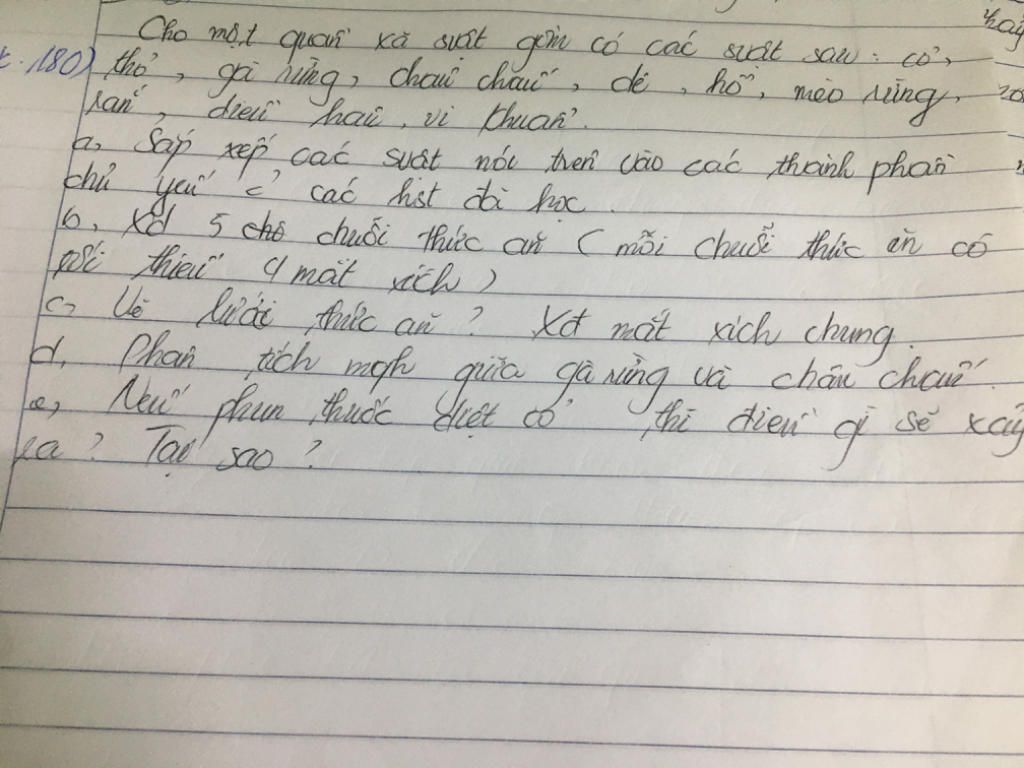 Cho một quần xã suất gồm có các suất sau: cỏ,
t.180) thỏ, gà rừng, châu chấu, dê, hổ, mèo rừng,
rắn, diều hâu, vi khuẩn.
a, Sắp xếp các suất nói trên vào các thành phần
chủ yếu c' các hst đã học.
b, Xd 5 chô chuỗi thức ăn (mỗi chuỗi thức ăn có
tối thiểu 4 mắt xích)
c, Vẽ lưới thức ăn? Xđ mắt xích chung.
d, Phân tích mqh giữa gà rừng và châu chấu.
e, Nếu phun thuốc diệt cỏ thì điều gì sẽ xảy
ra? Tại sao?